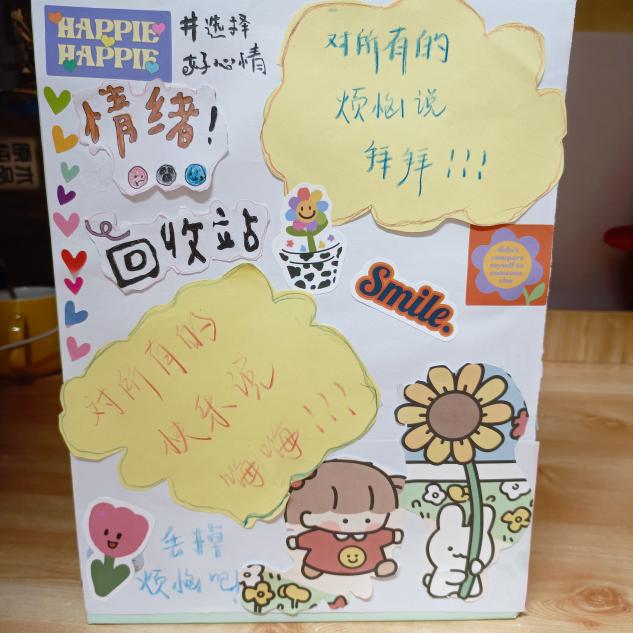 HAPPIE
HAPPIE
#选择
好心情
对所有的
烦恼说
拜拜!!!
情绪!
回收站
Smile.
didn't
compare
myself to
someone
else
对所有的
快乐说
嗨嗨!!!
丢掉
烦恼吧!